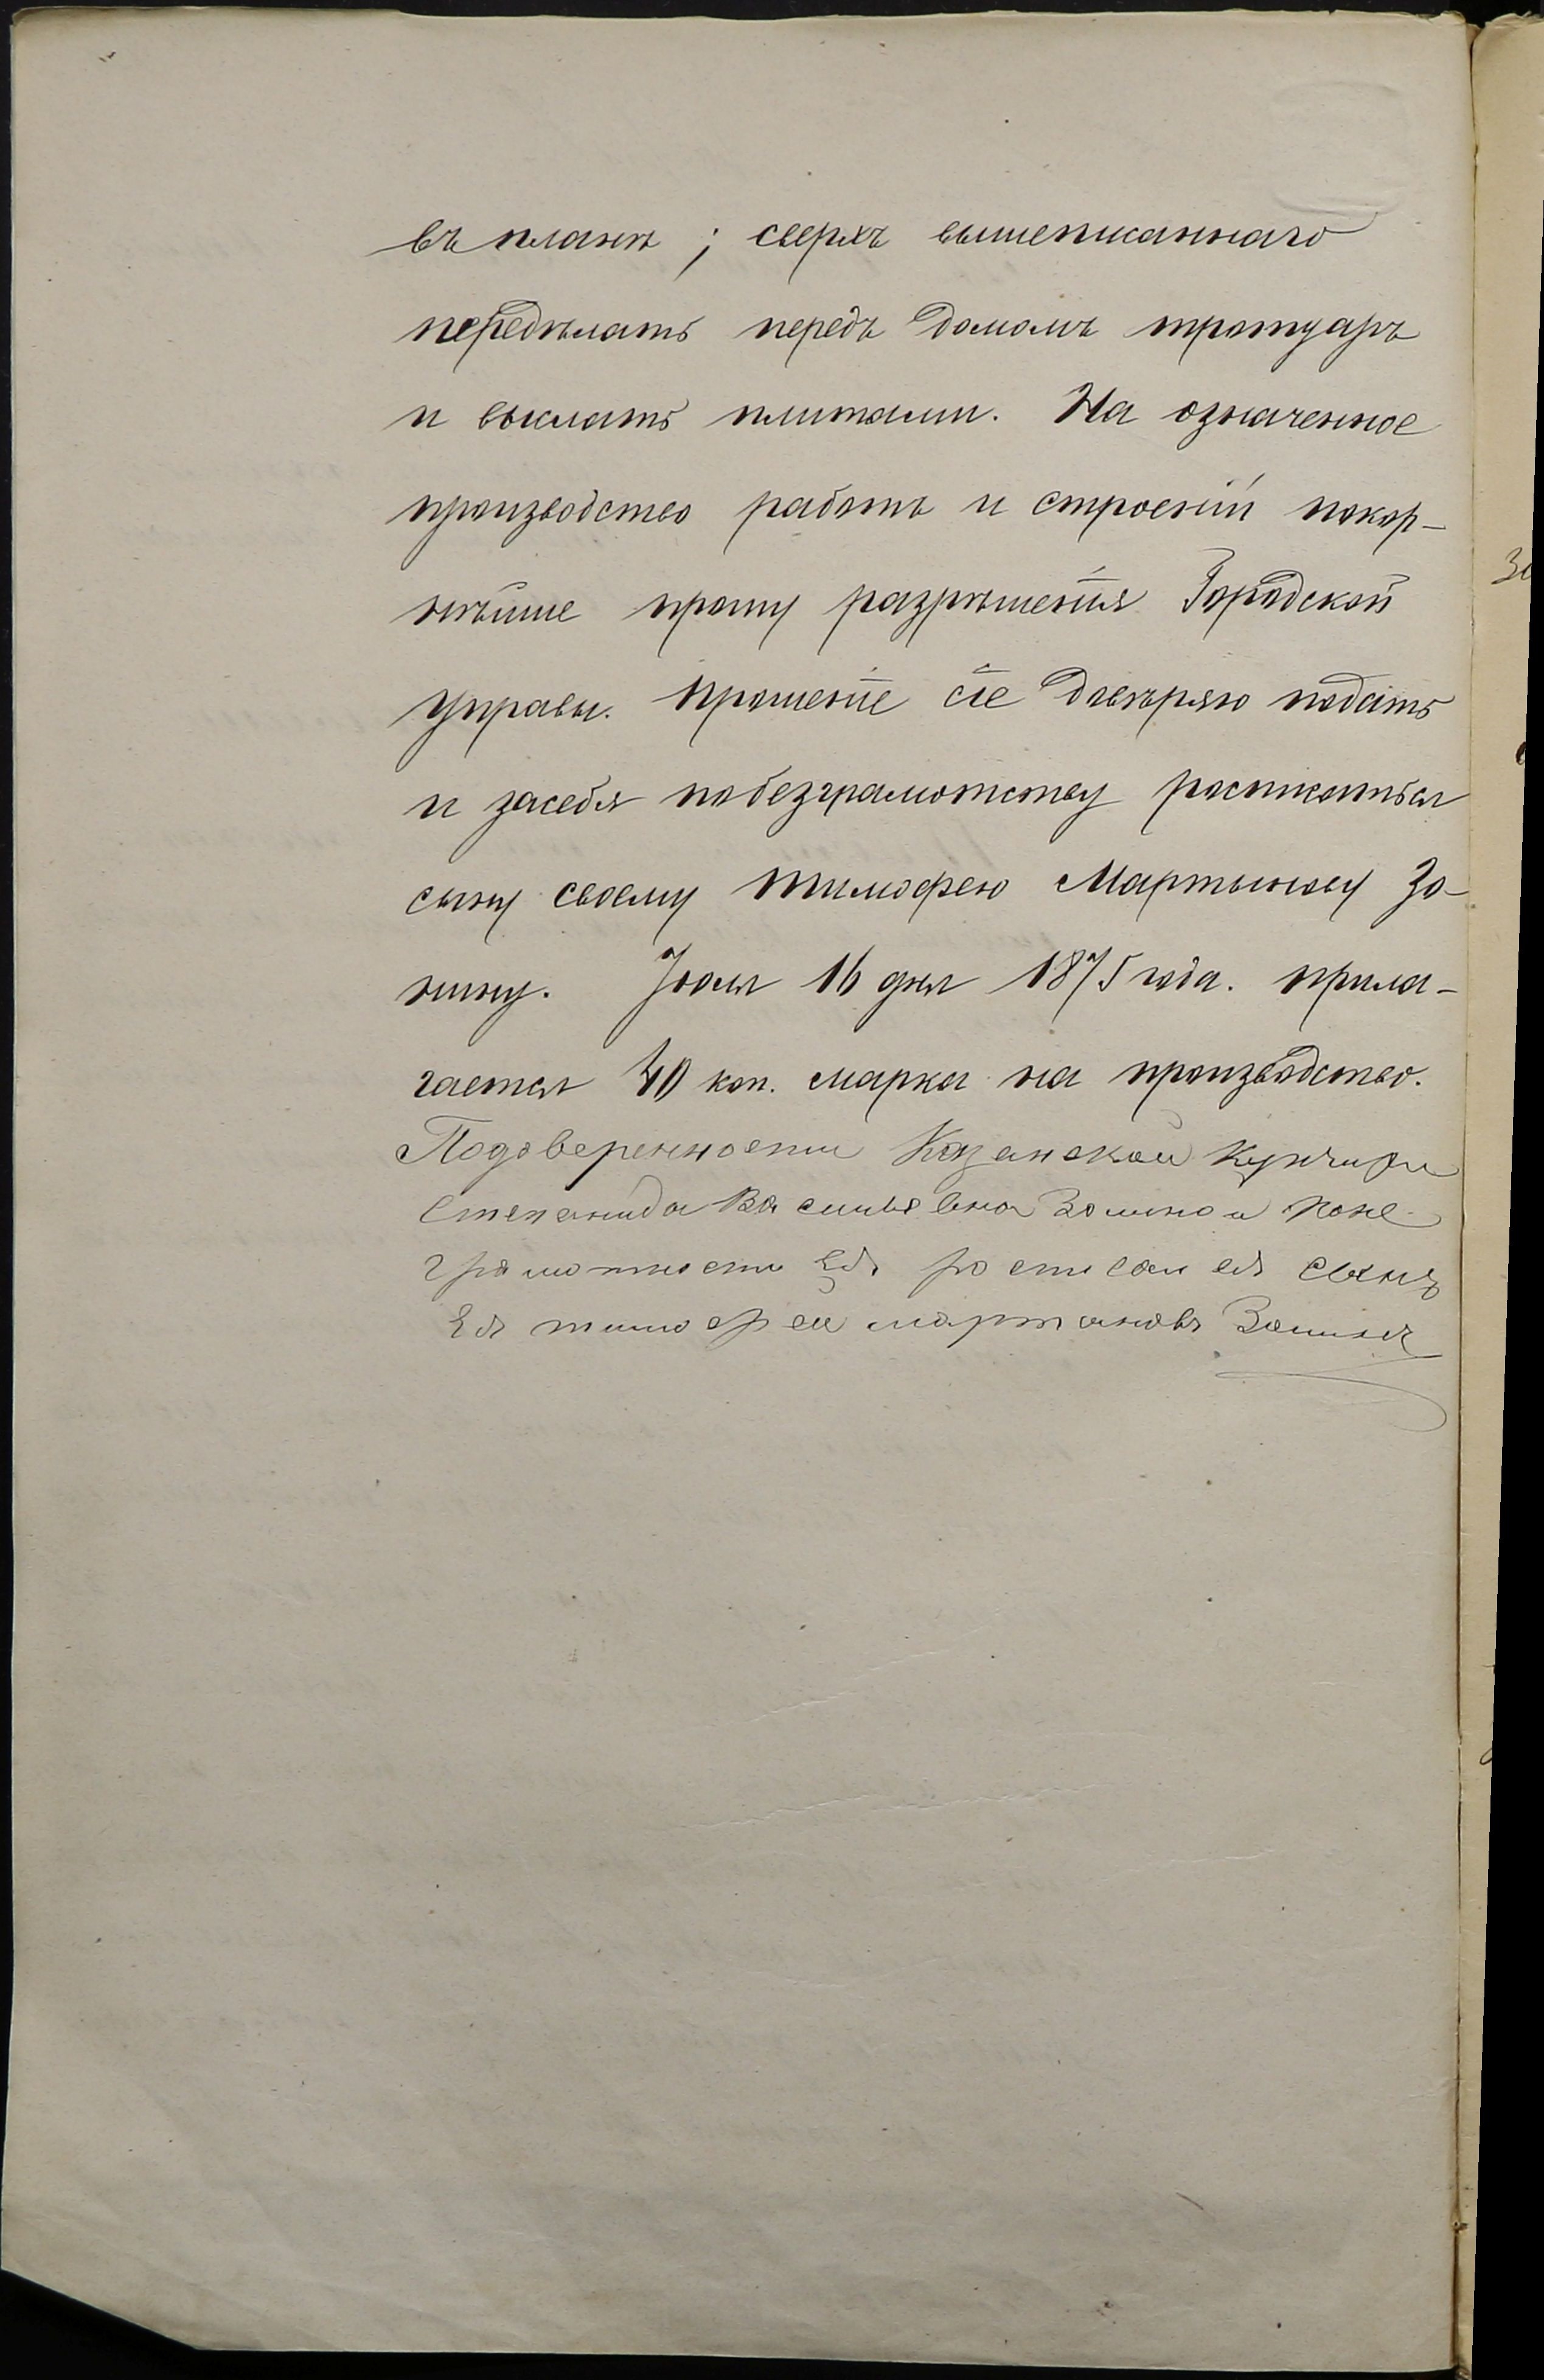 въ планѣ; сверхъ вышеписаннаго
передѣлать передъ домомъ тротуаръ
и выслать плитами. На означенное
производство работъ и строенiй покор-
нѣйше прошу разрѣшенiя Городской
Управы. Прошенiе сiе довѣряю подать
и засебя побезграмотству росписаться
сыну своему Тимофею Мартынову Зо-
нину. Iюля 16 дня 1875 года. Прила-
гается 40 коп. марка на производство.
Подоверенности Казанской Купчихи
Степанида Васильевна Зониной поне
грамотности Ея росписался сынъ
Ея тимофеи мартановъ Зонинъ